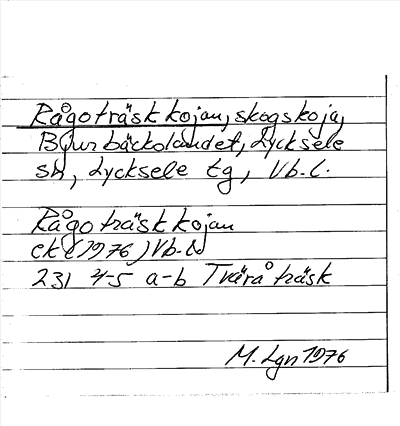 Rågoträskkojan, skogskoja,
Bjurbäckolandet, Lycksele
sn, Lycksele tg, Vb.l.
Rågoträskkojan
ek (1976) Vb.ld
231 4-5 a-b Tväråträsk
M. Lgn 1976